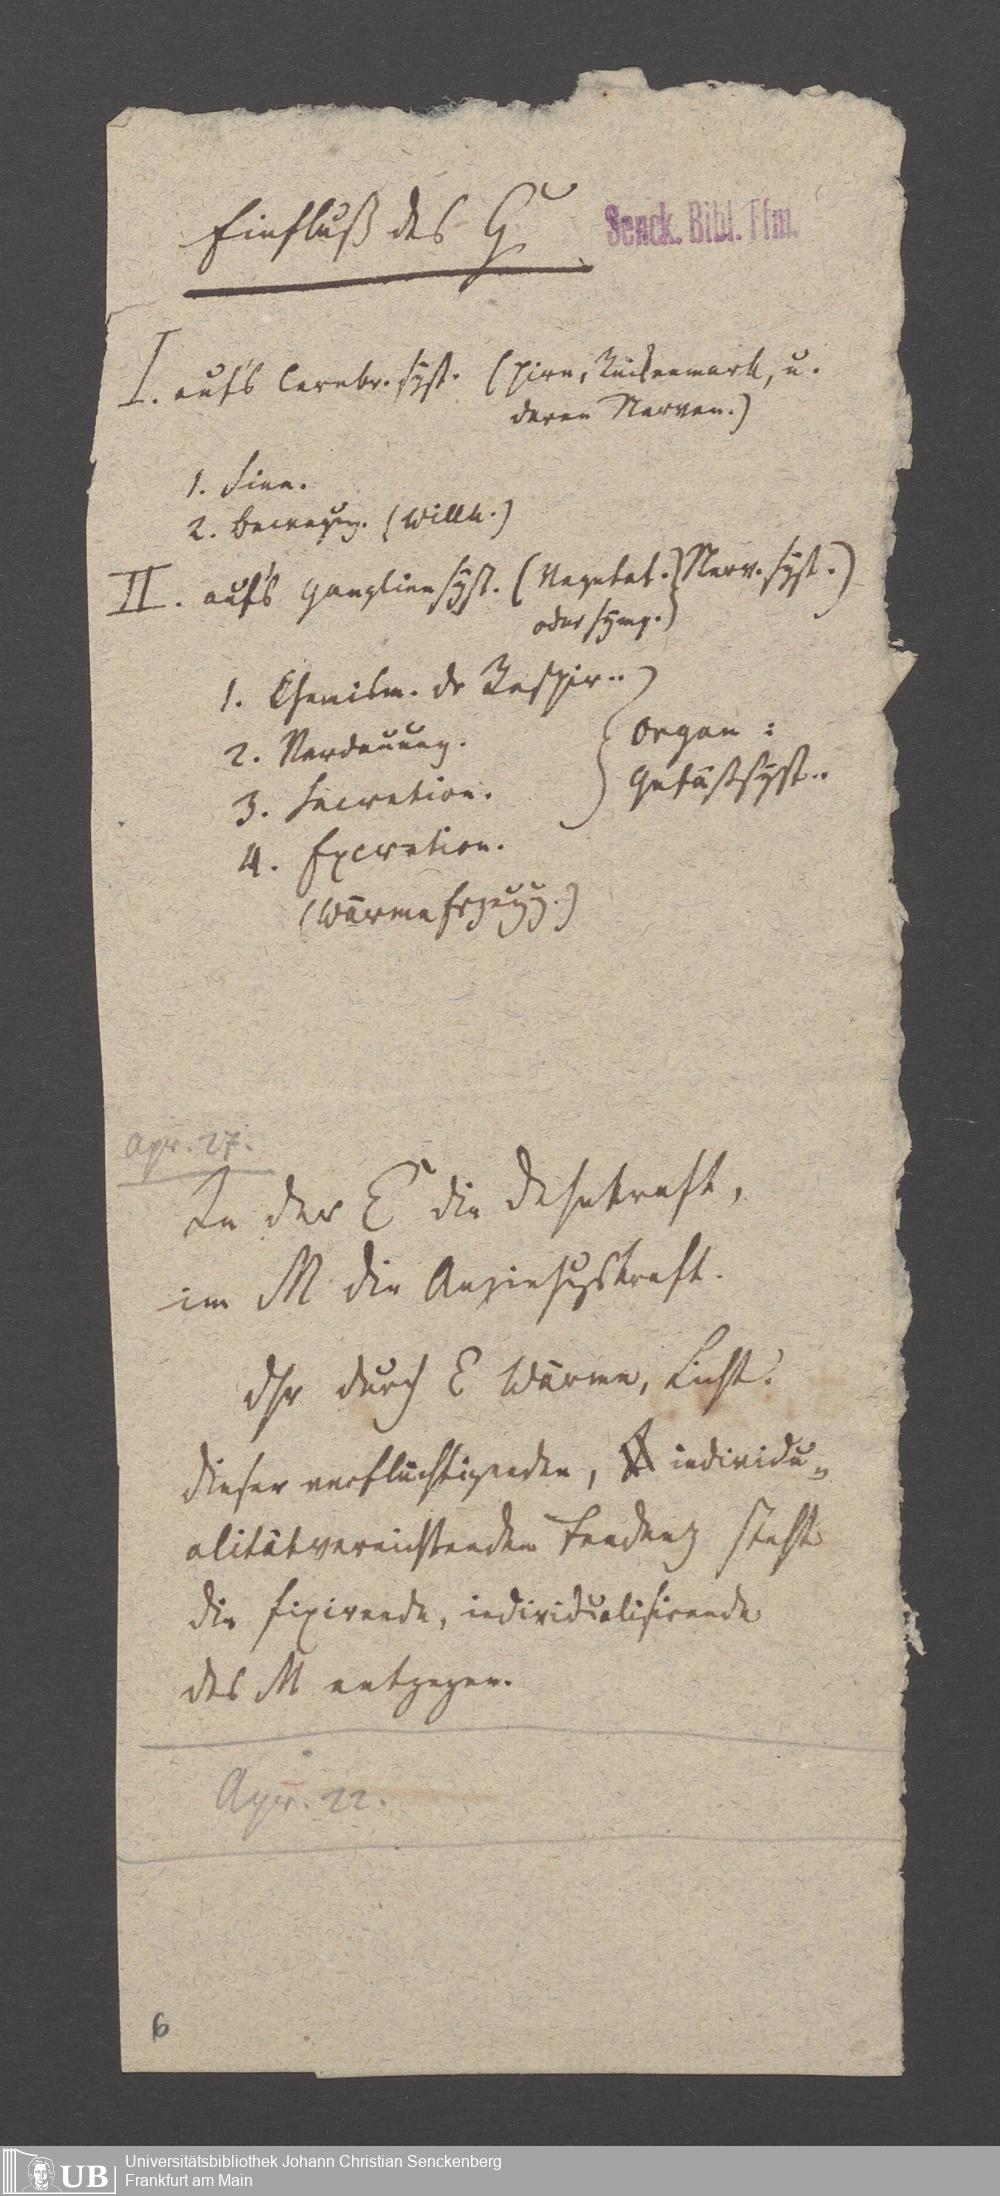 Einfluß des G
Senck. Bibl. Ffm.
I. auf's Cerebr. syst. (Hirn, Rückenmark, u.
deren Nerven.)
1. Sinn.
2. Bewegung. (Willk.)
II. auf's Gangliensyst. (Vegetat. } Nerv. syst.)
oder symp.
1. Chemism. dr Respir..
2. Verdauung.
Organ :
Gefäßsyst..
3. Secretion.
4. Excretion.
(Wärme Erzeugg.)
Apr. 27.
In der E die Dehnkraft,
im M die Anziehgskraft.
Dhr durch E Wärme, Licht.
dieser verflüchtigenden, individu=
alitätvernichtenden Tendenz steht
die fixirende, individualisirende
des M entgegen.
Apr. 22.
6
UB
Universitätsbibliothek Johann Christian Senckenberg
Frankfurt am Main